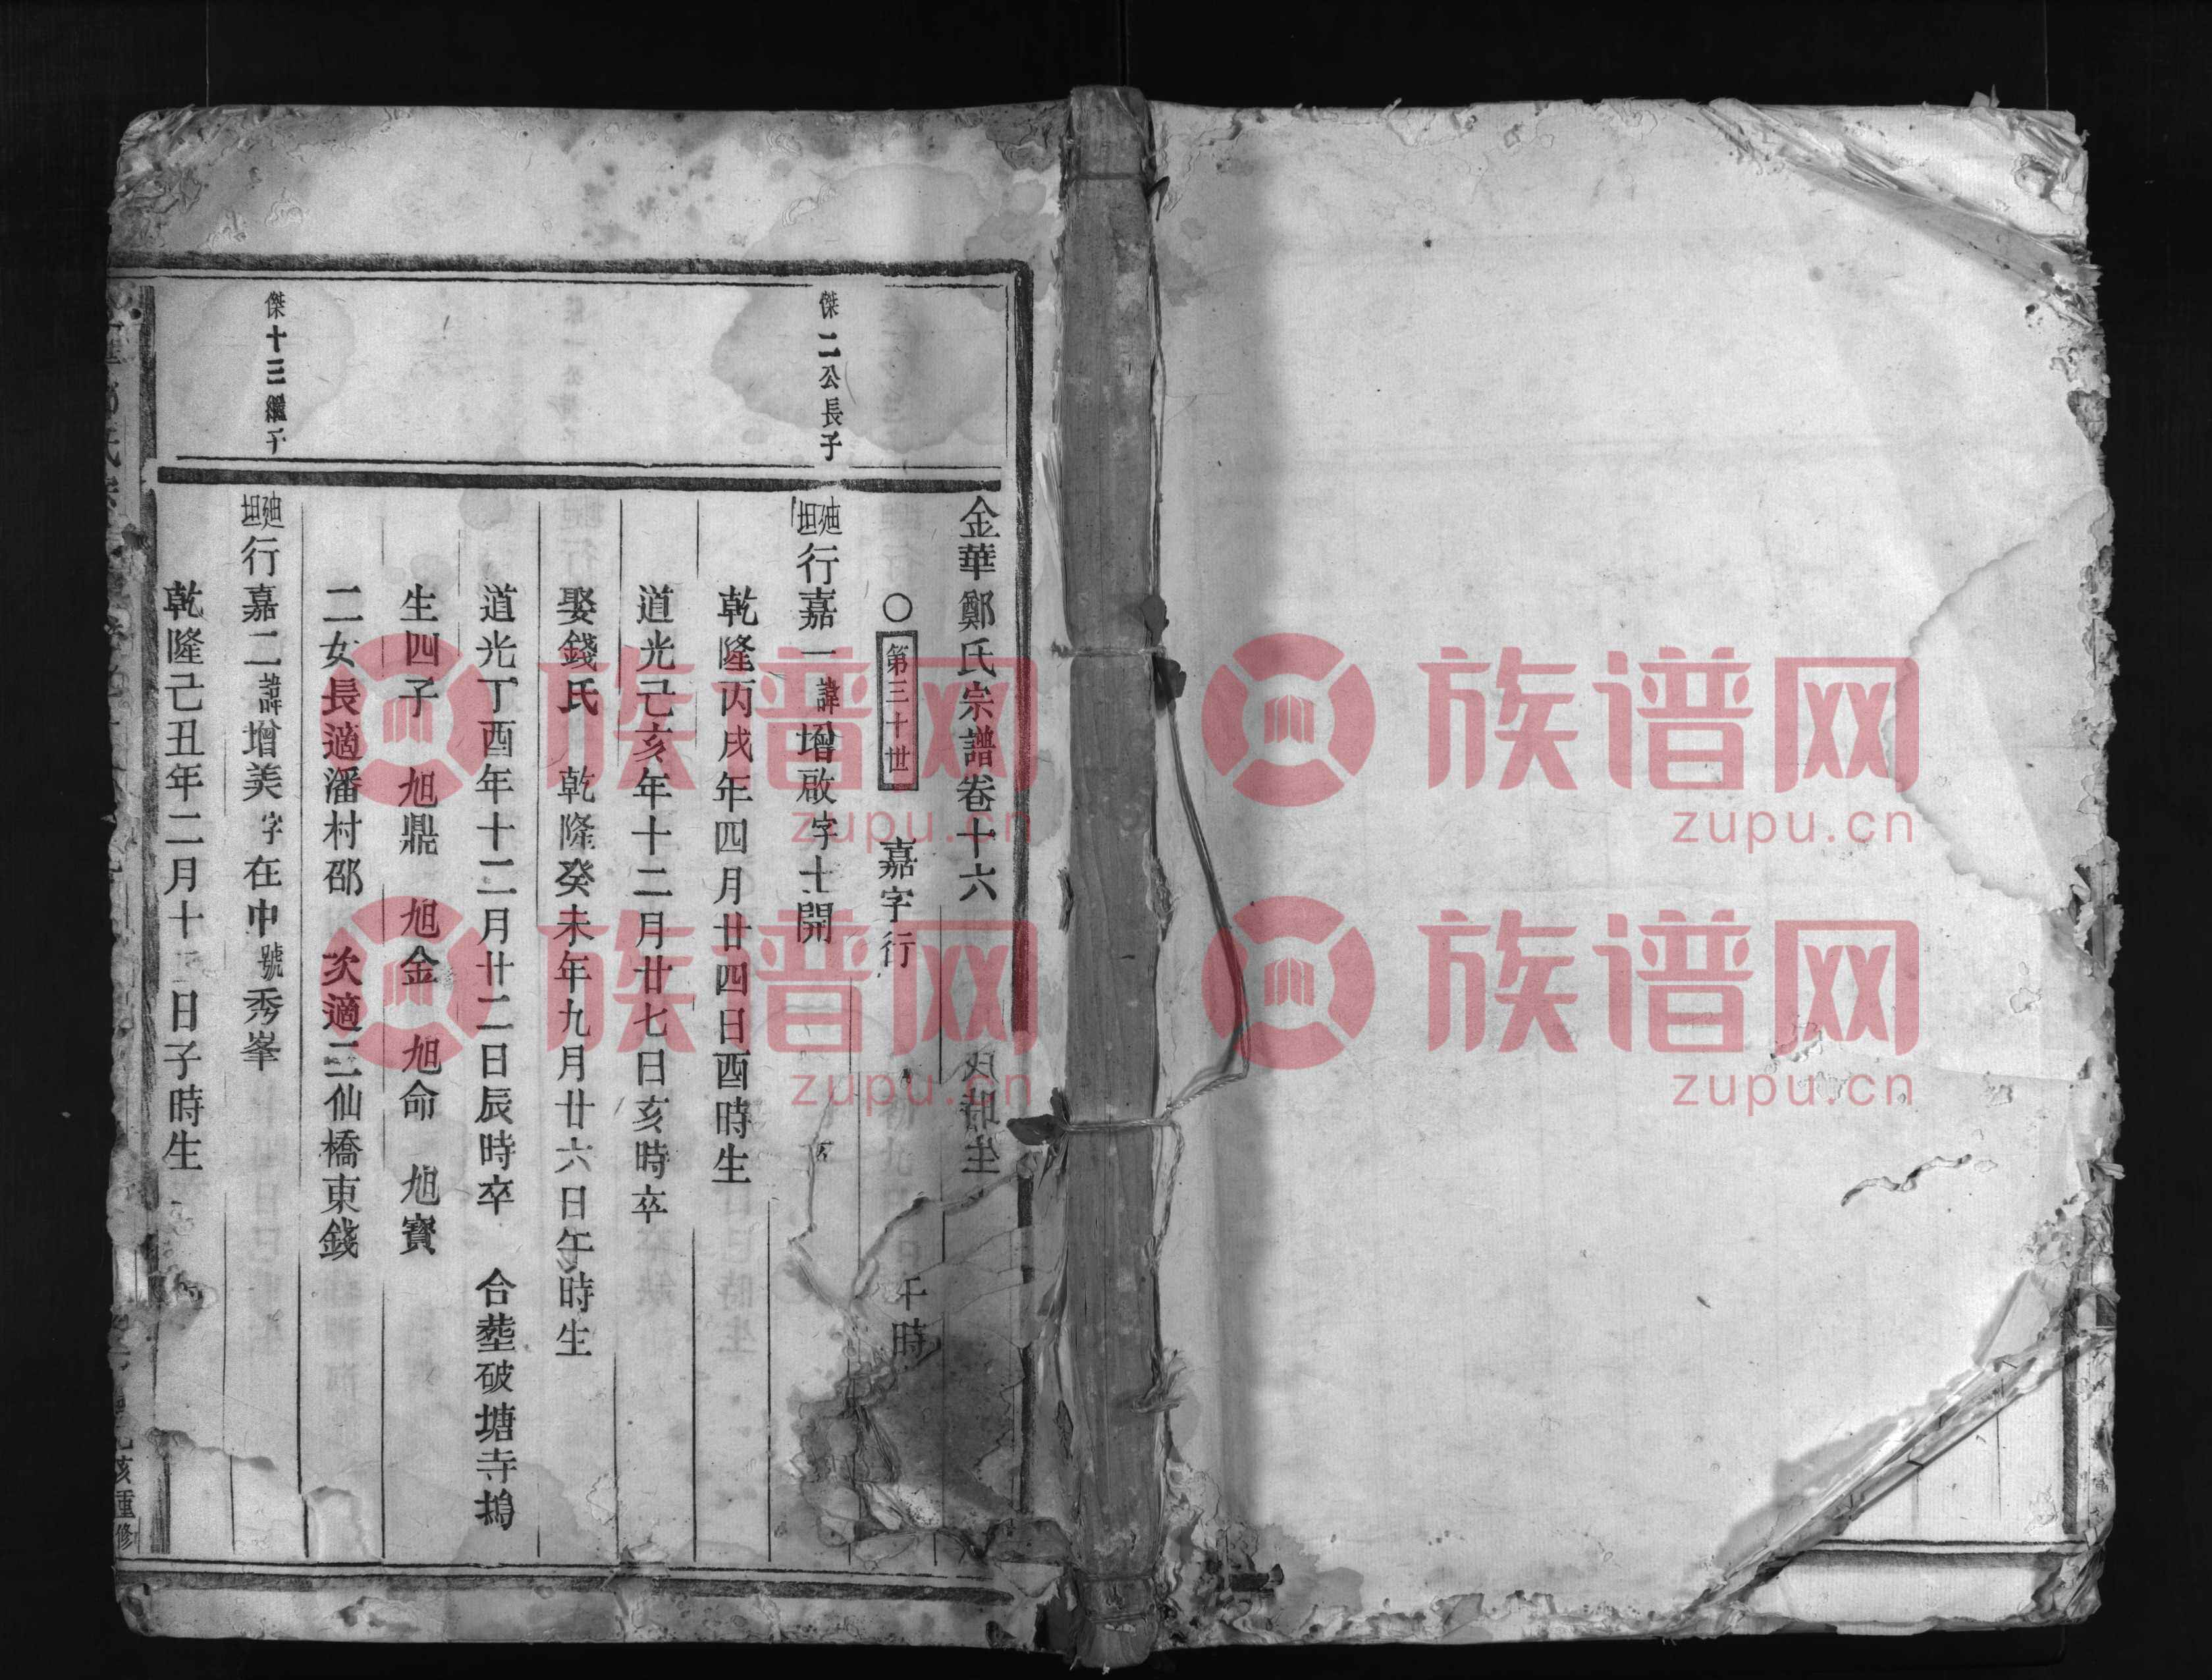 金華鄭氏宗譜卷十六
時生
○第三十世　嘉字行
時
傑二公長子
廸坦行嘉一諱增啟字士開
乾隆丙戌年四月廿四日酉時生
道光己亥年十二月廿七日亥時卒
娶錢氏　乾隆癸未年九月廿六日午時生
道光丁酉年十二月廿二日辰時卒　合塟破塘寺塢
生四子　旭鼎　旭金　旭命　旭寶
二女長適潘村邵　次適三仙橋東錢
傑十三繼子
廸坦行嘉二諱增美字在中號秀峯
乾隆己丑年二月十二日子時生
亥重修
族谱网
zupu.cn
族谱网
zupu.cn
族谱网
zupu.cn
族谱网
zupu.cn